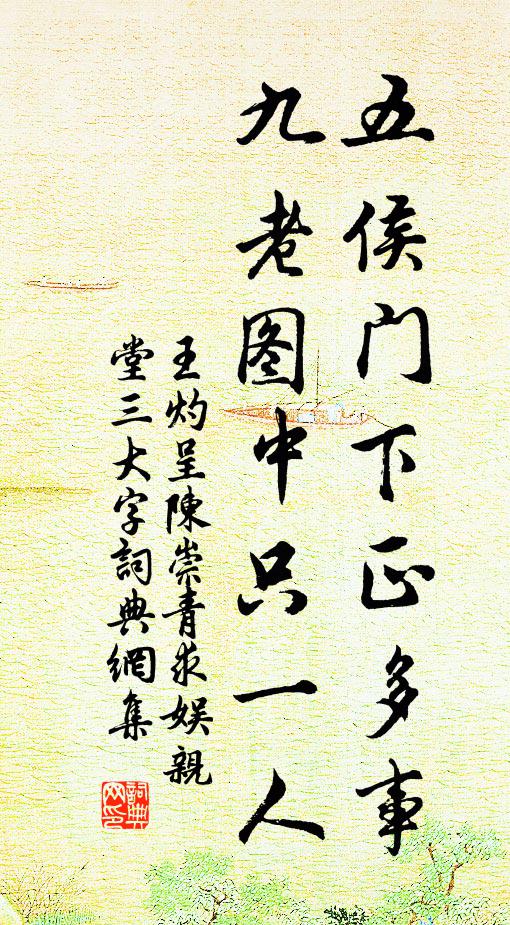 五侯门下正多事
九老图中只一人
王灼呈陳崇青求娱親
堂三大字詞典網集
詞典网印